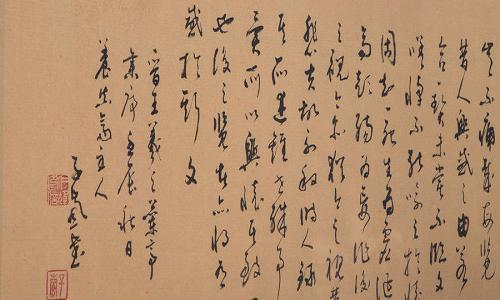 豈不痛哉每覽
昔人興感之由若
合一契未嘗不臨文
嗟悼不能喻之於懷
固知一死生為虛誕
齊彭殤為妄作後
之視今亦猶今之視昔
悲夫故列敘時人錄
其所述雖世殊事
異所以興懷其致
也後之覽者亦將有
感於斯文
晉王羲之蘭亭
集序壬辰秋日
養真齋主人